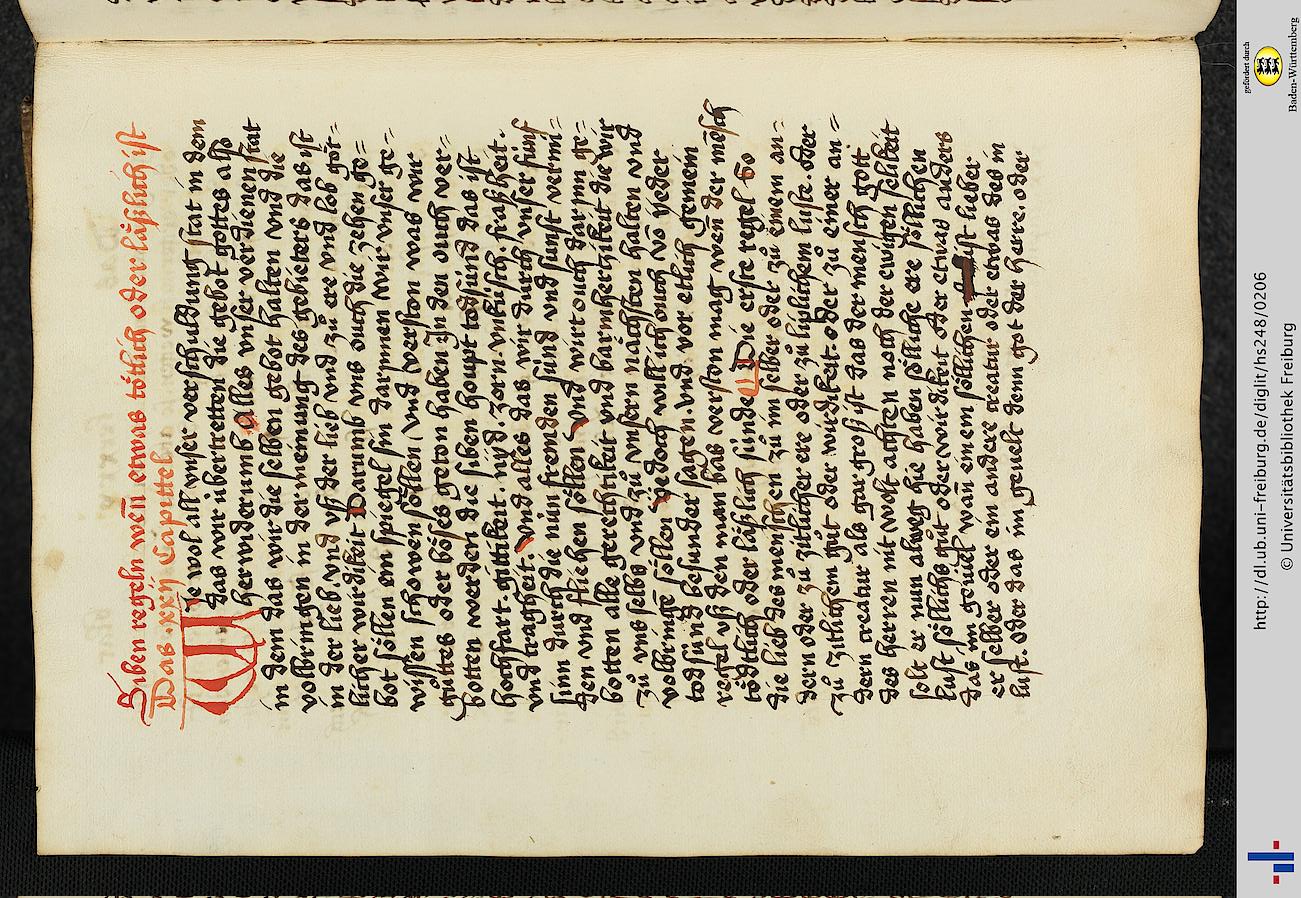 Siben regeln wen̄ etwas tötlich oder läßlich ist
Das .xxij Capittel
Wie wol all vnser verschuldung stat in dem
das wir übertretten die gebot gottes also
herwiderumb Alles vnser verdienen stat
in dem das wir die selben gebot halten vnd die
volbringen in der meinung des gebieters das ist
in der lieb vnd vß der lieb vnd zů ere vnd lob göt=
licher wirdikeit Darumb vns ouch die zehen ge=
bot söllen ein spiegel sin darjnnen wir vnser ge=
wissen schowen söllen / vnd verston was wir
gůttes oder böses geton haben Jn den ouch ver=
botten werden die siben houpt todsünd das ist
hochfart . gittikeit . nyd . zorn . vnküsch . fraßheit .
vnd tragheit . Vnd alles das wir durch vnser fünf
sinn durch die nün fremden sünd vnd sunst vermi=
den vnd fliehen söllen Vnd wirt ouch darjnn ge=
botten alle gerechtikeit vnd barmhertzikeit die wir
zů vns selbs vnd zů vnsern nächsten halten vnd
volbringē söllen Yedoch will ich ouch vō yeder
todsünd besunder sagen . vnd vor etlich gemein
regel vß den man bas verston mag wen̄ der mēsch
tödtlich oder läßlich sünde Die erste regel So
die lieb des menschen zů im selber oder zů einem an=
dern oder zů zitlicher ere oder zů liplichem luste . oder
zů zitlichem gůt oder wirdikeit . oder zů einer an=
dern creatur als gar groß ist das der mensch gott
des herren nit wolt achten noch der ewigen selikeit
solt er nun alweg hie haben sölliche ere söllichen
lust söllichs gůt oder wirdikeit oder etwas anders
das im geuiel wan̄ einem söllichen ist lieber
er selber oder ein andere creatur oder etwas des in
lust . oder das im geuelt denn got der herre . oder
gefördert durch
Baden-Württemberg
http://dl.ub.uni-freiburg.de/diglit/hs248/0206
© Universitätsbibliothek Freiburg